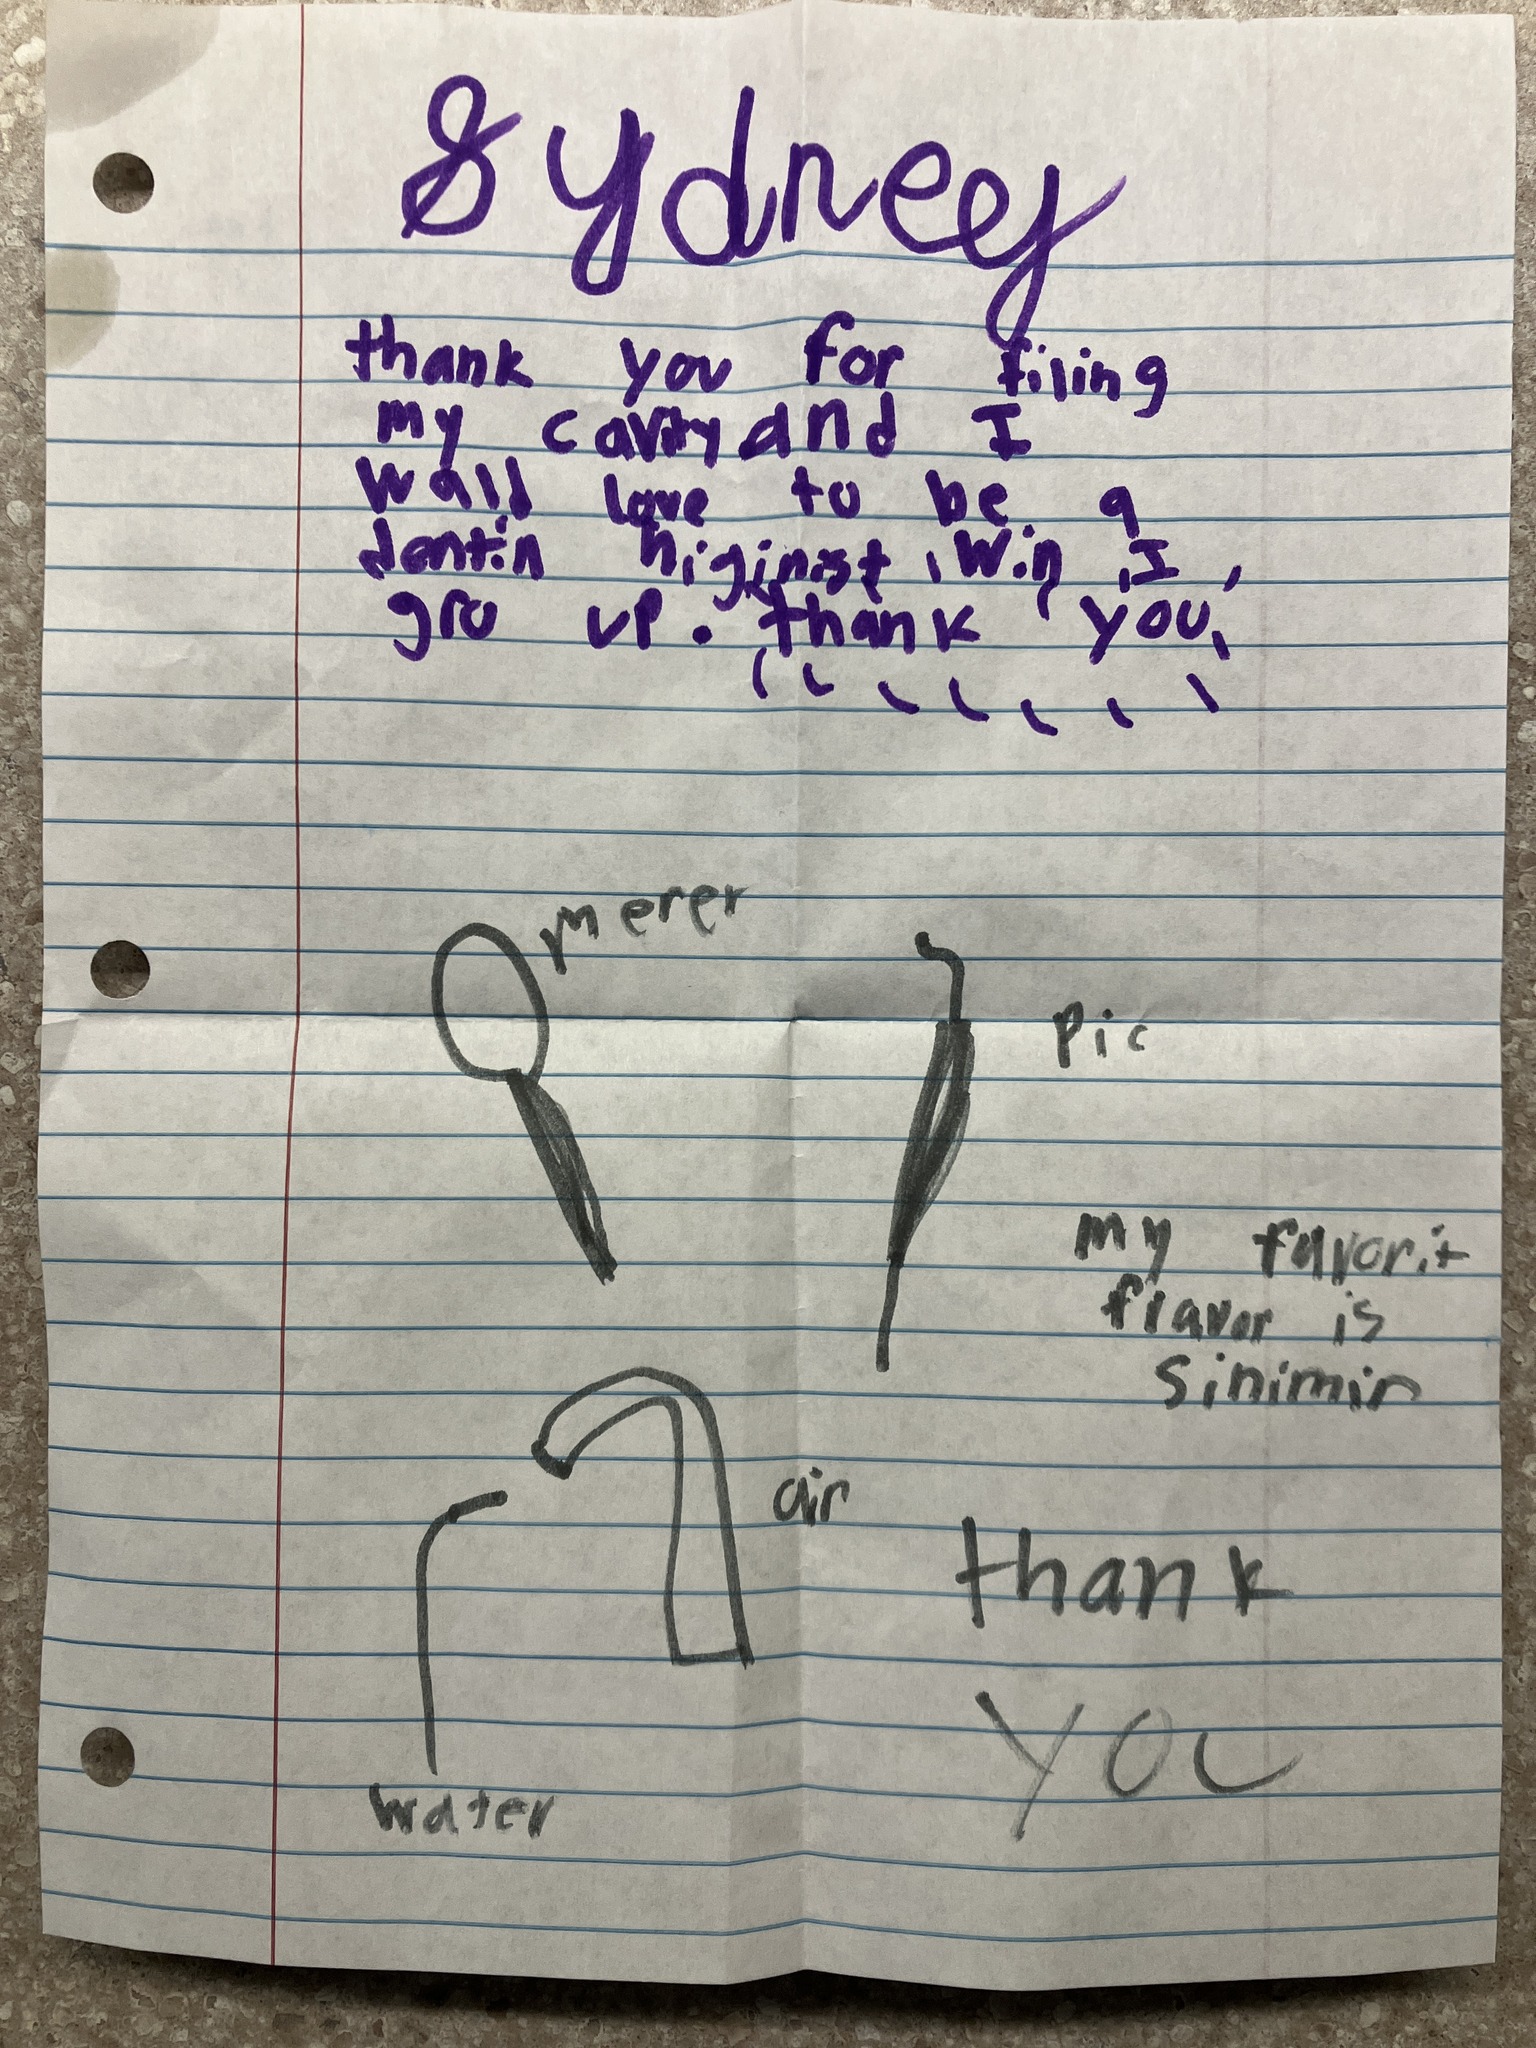 Sydney
thank you for filing
my cavity and I
walld love to be a
dentin higinist win I
gro up. thank you
merer
pic
my favorit
flavor is
sinimin
air
thank
you
water